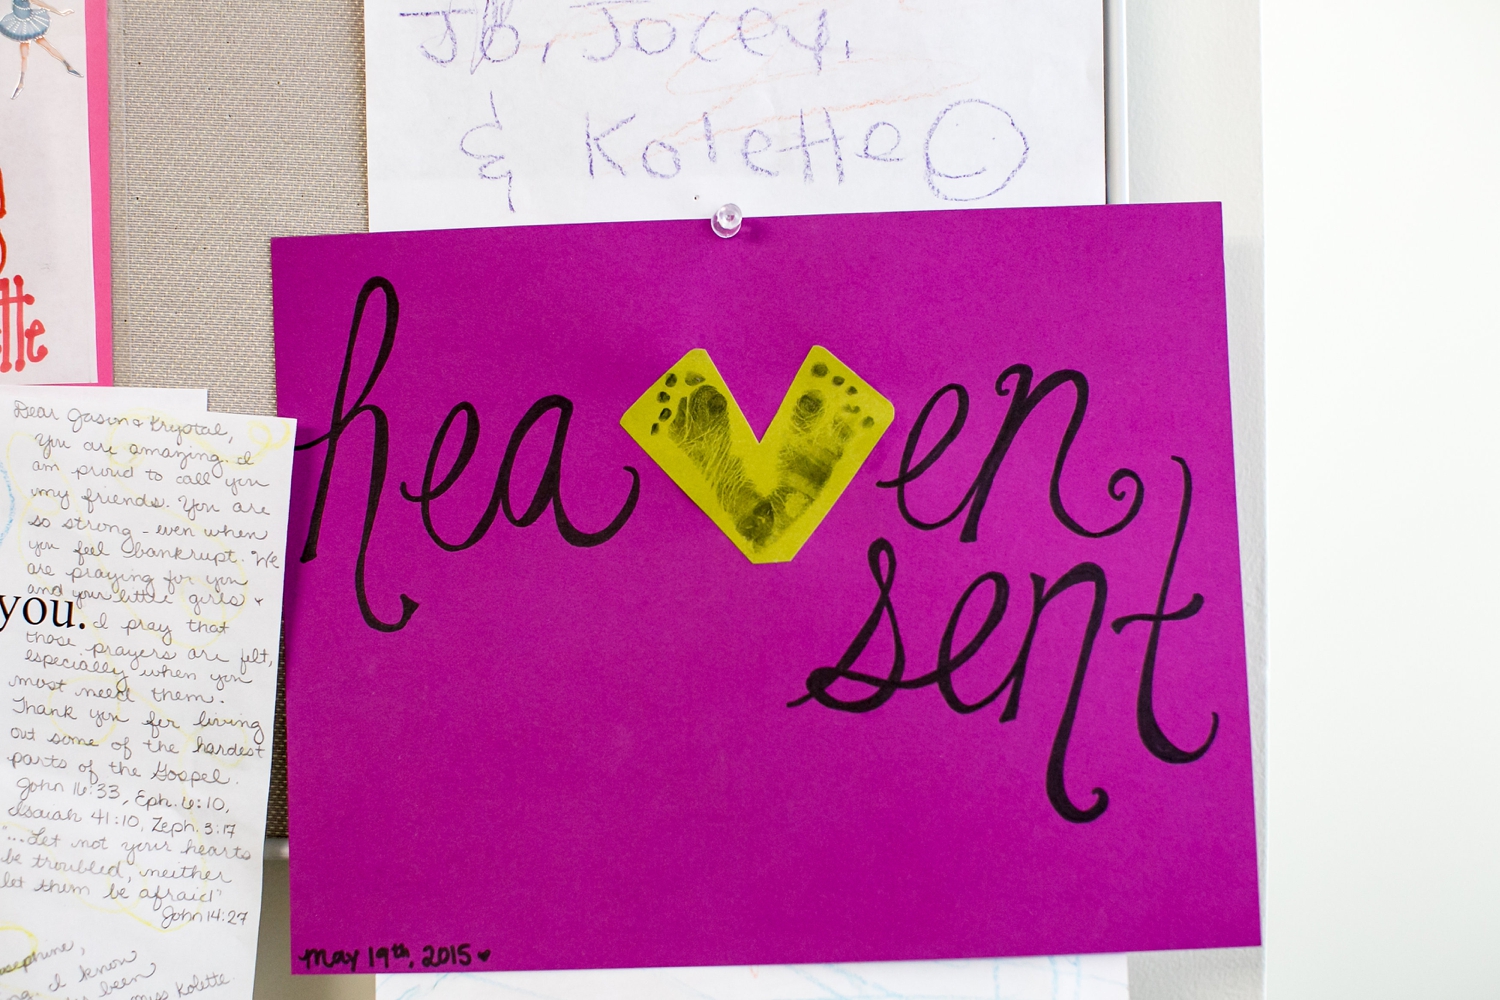 JB, Jocey,
& Kolette
heaven
sent
May 19th, 2015
tte
Dear Jason & Krystal,
You are amazing. I
am proud to call you
my friends. You are
so strong - even when
you feel bankrupt. We
are praying for you
and your little girls &
you.
I pray that
those prayers are felt,
especially when you
most need them.
Thank you for living
out some of the hardest
parts of the Gospel.
John 16:33, Eph. 6:10,
Isaiah 41:10, Zeph. 3:17
"...Let not your hearts
be troubled, neither
let them be afraid"
John 14:27
sephine,
I know
been
miss Kolette.